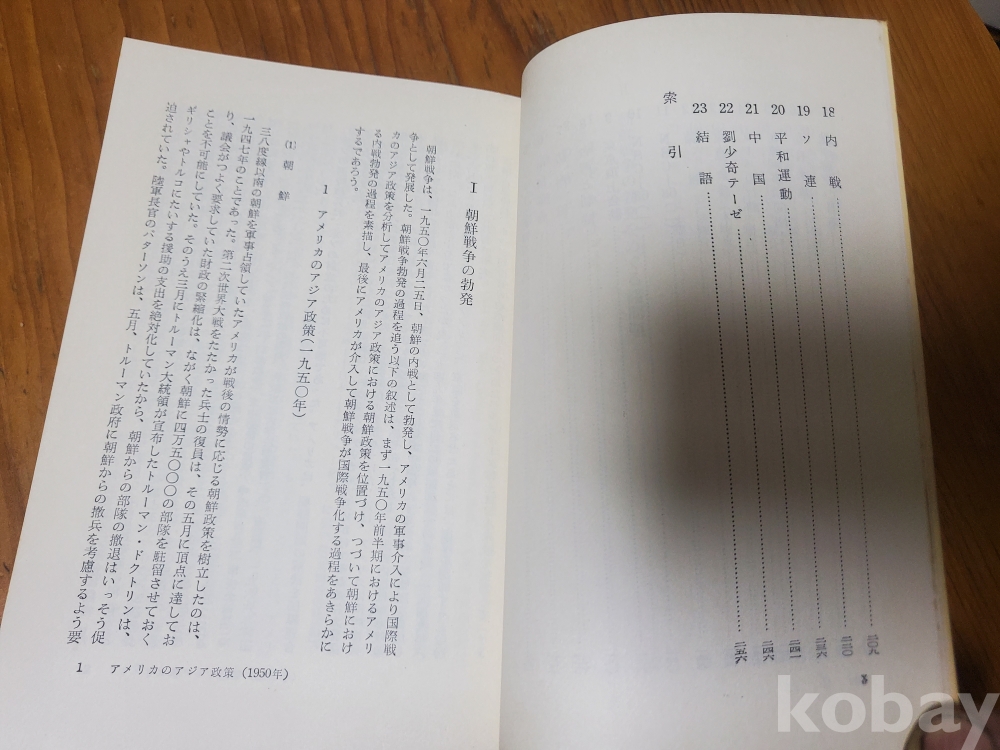 18 内戦 二〇九
19 ソ連 二二〇
20 平和運動 二三六
21 中国 二四一
22 劉少奇テーゼ 二四六
23 結語 二五六
索引
I 朝鮮戦争の勃発
朝鮮戦争は、一九五〇年六月二五日、朝鮮の内戦として勃発し、アメリカの軍事介入により国際戦
争として発展した。朝鮮戦争勃発の過程を追う以下の叙述は、まず一九五〇年前半期におけるアメリ
カのアジア政策を分析してアメリカのアジア政策における朝鮮政策を位置づけ、つづいて朝鮮におけ
る内戦勃発の過程を素描し、最後にアメリカが介入して朝鮮戦争が国際戦争化する過程をあきらかに
するであろう。
1 アメリカのアジア政策(一九五〇年)
(1) 朝鮮
三八度線以南の朝鮮を軍事占領していたアメリカが戦後の情勢に応じる朝鮮政策を樹立したのは、
一九四七年のことであった。第二次世界大戦をたたかった兵士の復員は、その五月に頂点に達してお
り、議会がつよく要求していた財政の緊縮化は、ながく朝鮮に四万五〇〇〇の部隊を駐留させておく
ことを不可能にしていた。そのうえ三月にトルーマン大統領が宣布したトルーマン・ドクトリンは、
ギリシャやトルコにたいする援助の支出を絶対化していたから、朝鮮からの部隊の撤退はいっそう促
迫されていた。陸軍長官のパターソンは、五月、トルーマン政府に朝鮮からの撤兵を考慮するよう要
1 アメリカのアジア政策(1950年)
kobay